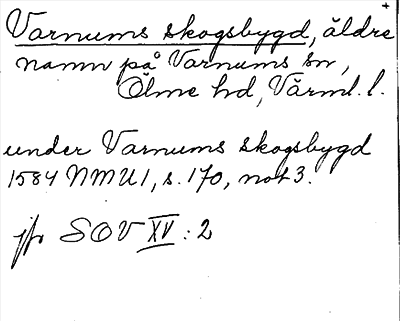 Varnums skogsbygd, äldre
namn på Varnums sn,
Ölme hd, Värml. l.
under Varnums skogsbygd
1584 NMU 1, s. 170, not 3.
jfr SOV XV : 2